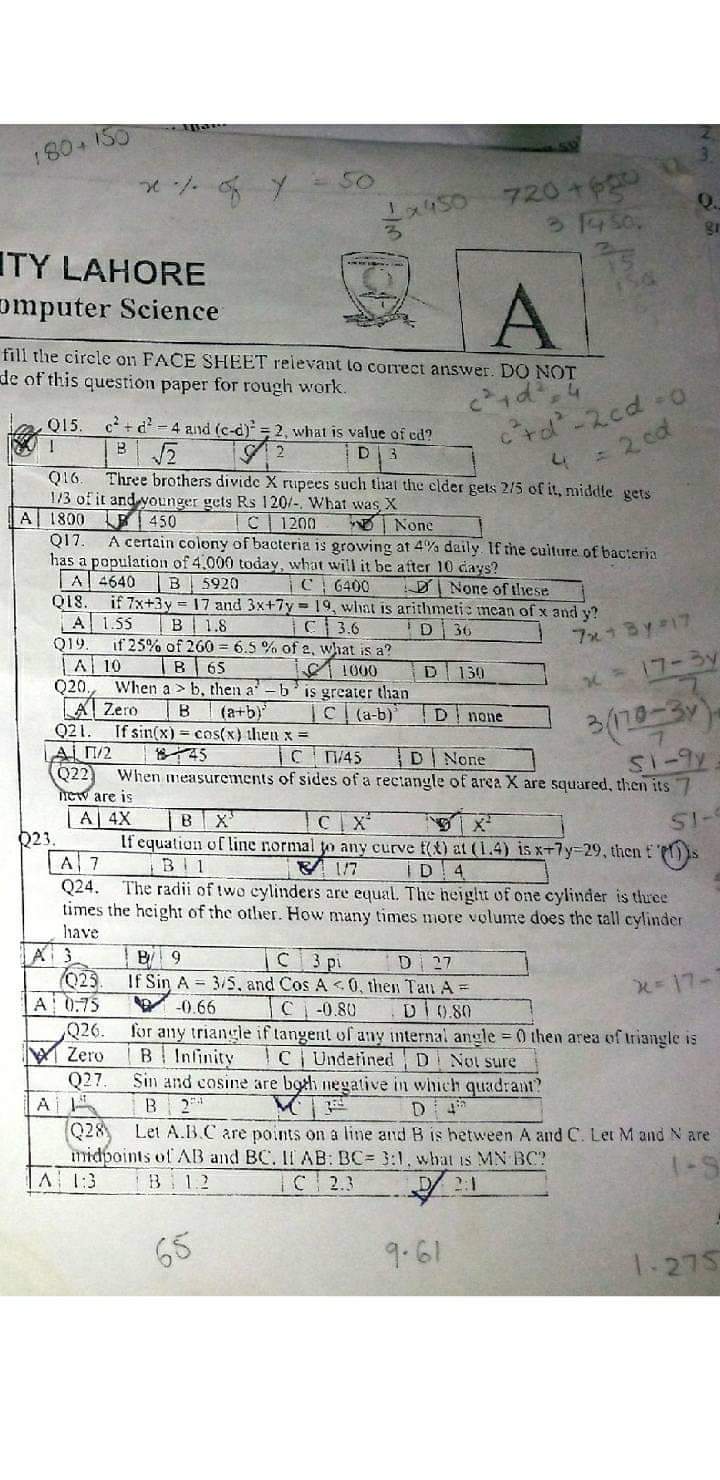 180+150
x % of y = 50
1/3 x 450
720 +
3 √450
ITY LAHORE
omputer Science
A
fill the circle on FACE SHEET relevant to correct answer. DO NOT
de of this question paper for rough work.
c² + d² = 4
c² + d² - 2cd = 0
4 = 2cd
Q15. c² + d² = 4 and (c-d)² = 2, what is value of cd?
A 1 B √2 C 2 D 3
Q16. Three brothers divide X rupees such that the elder gets 2/5 of it, middle gets
1/3 of it and younger gets Rs 120/-. What was X
A 1800 B 450 C 1200 D None
Q17. A certain colony of bacteria is growing at 4% daily If the culture of bacteria
has a population of 4,000 today, what will it be after 10 days?
A 4640 B 5920 C 6400 D None of these
Q18. if 7x+3y = 17 and 3x+7y = 19, what is arithmetic mean of x and y?
A 1.55 B 1.8 C 3.6 D 36
7x + 3y = 17
Q19. if 25% of 260 = 6.5 % of a, what is a?
A 10 B 65 C 1000 D 130
x = 17-3y
7
Q20. When a > b, then a³ – b³ is greater than
A Zero B (a+b)³ C (a-b)³ D none
Q21. If sin(x) = cos(x) then x =
51-9y
7
A Π/2 B 45 C Π/45 D None
Q22 When measurements of sides of a rectangle of area X are squared, then its
new are is
A 4X B X³ C X² D
51-
Q23. If equation of line normal to any curve f(x) at (1,4) is x+7y=29, then f '(1) is
A 7 B 1 C 1/7 D 4
Q24. The radii of two cylinders are equal. The height of one cylinder is three
times the height of the other. How many times more volume does the tall cylinder
have
A 3 B 9 C 3 pi D 27
Q25. If Sin A = 3/5, and Cos A < 0, then Tan A =
x = 17-
A 0.75 B -0.66 C -0.80 D 0.80
Q26. for any triangle if tangent of any internal angle = 0 then area of triangle is
A Zero B Infinity C Undefined D Not sure
Q27. Sin and cosine are both negative in which quadrant?
A 1st B 2nd C 3rd D 4th
Q28 Let A.B.C are points on a line and B is between A and C. Let M and N are
midpoints of AB and BC. If AB: BC= 3:1, what is MN:BC?
A 1:3 B 1.2 C 2.3 D 2:1
65
9.61
1.275